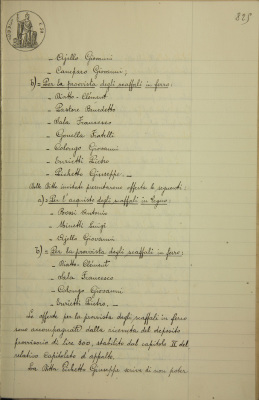 825
- Cijello Giovanni
- Canepero Giovanni;
b) = Per la provvista degli scaffali in ferro:
- Biatto-Clément
- Pastore Benedetto
- Sala Francesco
- Gonella Fratelli
- Colongo Giovanni
- Enrietti Pietro
- Pichetto Giuseppe. -
Delle Ditte invitate presentarono offerta le seguenti:
a) = Per l'acquisto degli scaffali in legno:
- Bossi Antonio
- Minotti Luigi
- Cijello Giovanni
b) - Per la provvista degli scaffali in ferro:
- Biatto-Clément
- Sala Francesco
- Colongo Giovanni
- Enrietti Pietro. -
Le offerte per la provvista degli scaffali in ferro
sono accompagnate dalla ricevuta del deposito
provvisorio di lire 300, stabilito dal capitolo II del
relativo Capitolato d'appalto.
La Ditta Pichetto Giuseppe scrive di non poter